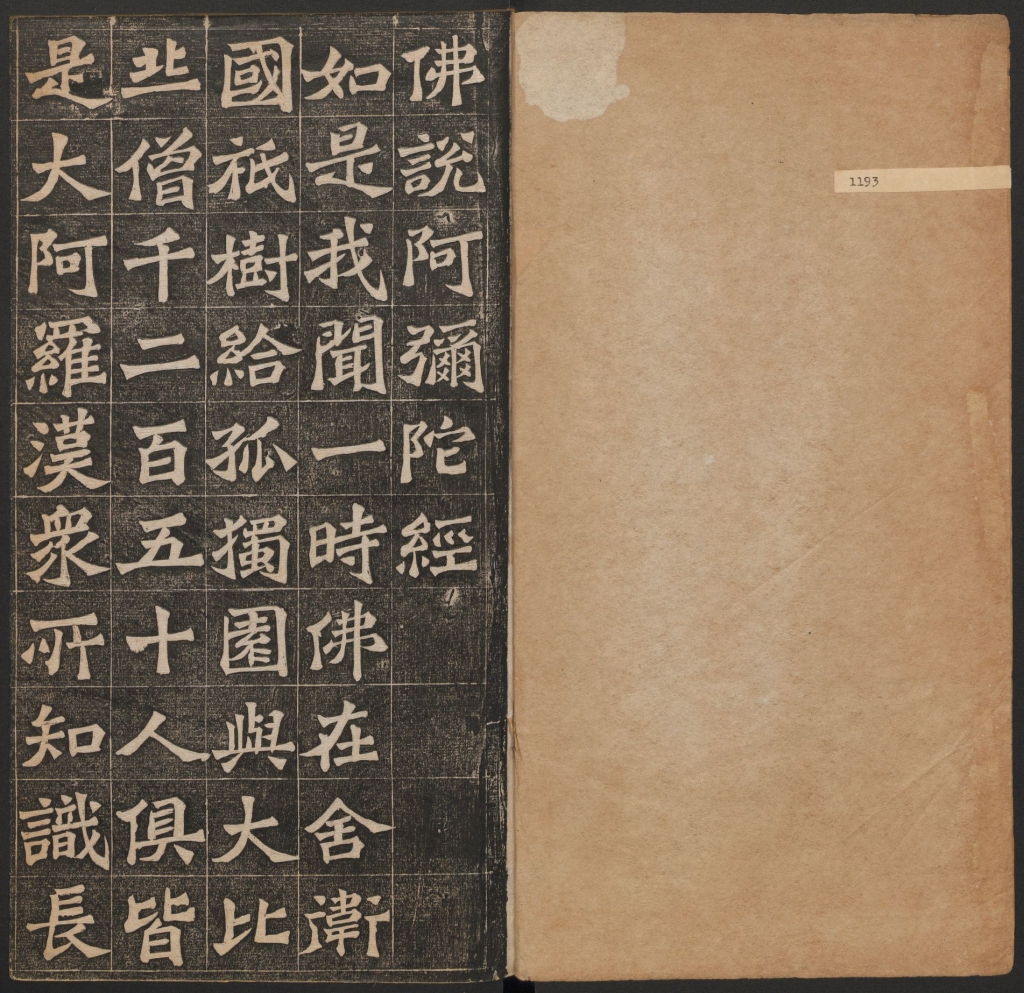 1193
佛說阿彌陀經
如是我聞一時佛在舍衛
國祇樹給孤獨園與大比
丠僧千二百五十人俱皆
是大阿羅漢衆所知識長